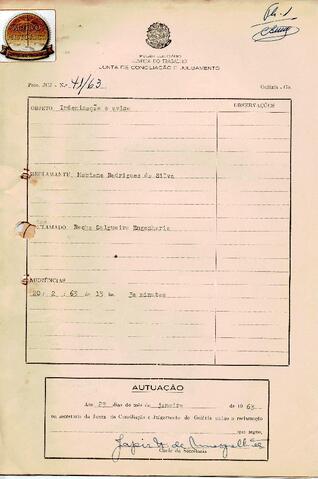 Fls. 1
PODER JUDICIÁRIO
JUSTIÇA DO TRABALHO
JUNTA DE CONCILIAÇÃO E JULGAMENTO
Proc. JCJ - N.º 41/63
Goiânia - Go.
OBJETO Indenização e aviso
OBSERVAÇÕES
RECLAMANTE Rodrigues da Silva
RECLAMADO Rocha Salgueiro Engenharia
AUDIÊNCIAS
20 2 63 às 13 hs 30 minutos
AUTUAÇÃO
Aos 29 dias do mês de janeiro de 1963
na secretaria da Junta de Conciliação e Julgamento de Goiânia autuo a reclamação
que segue,
Chefe da Secretaria